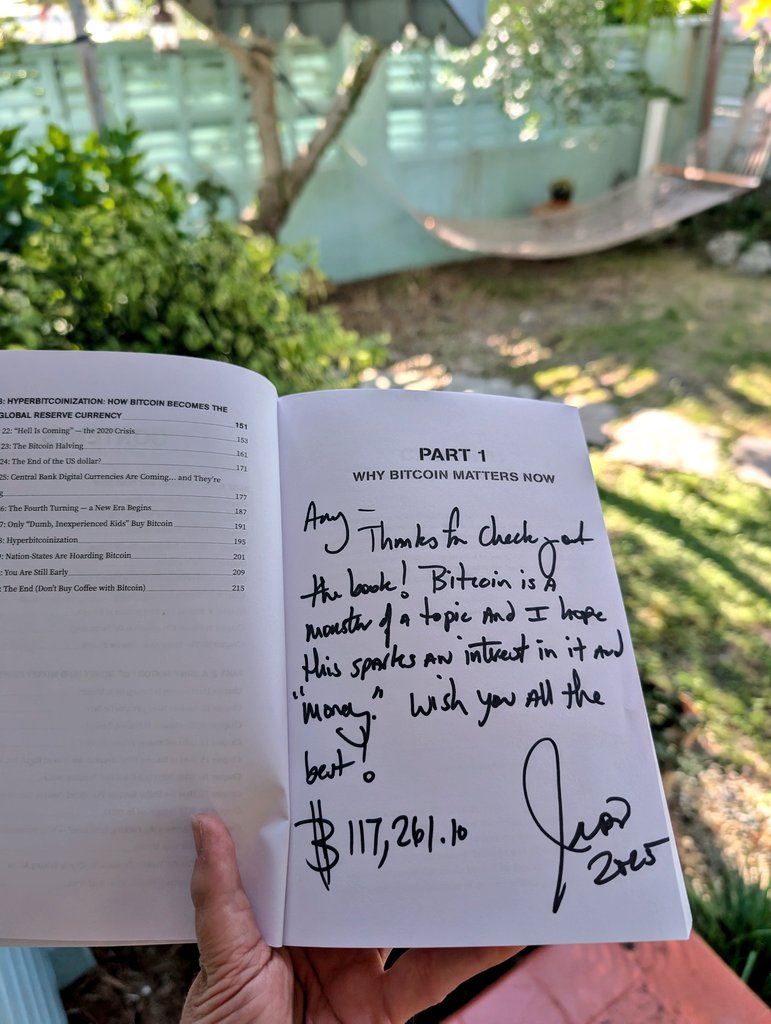 3: HYPERBITCOINIZATION: HOW BITCOIN BECOMES THE
GLOBAL RESERVE CURRENCY 151
22: “Hell Is Coming” — the 2020 Crisis 153
23: The Bitcoin Halving 161
24: The End of the US dollar? 171
25: Central Bank Digital Currencies Are Coming… and They're
g 177
6: The Fourth Turning — a New Era Begins 187
7: Only “Dumb, Inexperienced Kids” Buy Bitcoin 191
8: Hyperbitcoinization 195
Nation-States Are Hoarding Bitcoin 201
: You Are Still Early 209
: The End (Don't Buy Coffee with Bitcoin) 215
PART 1
WHY BITCOIN MATTERS NOW
Amy –
Thanks for checking out
the book! Bitcoin is a
monster of a topic and I hope
this sparks an interest in it and
“money.” Wish you all the
best!
₿ 117,261.10
2025